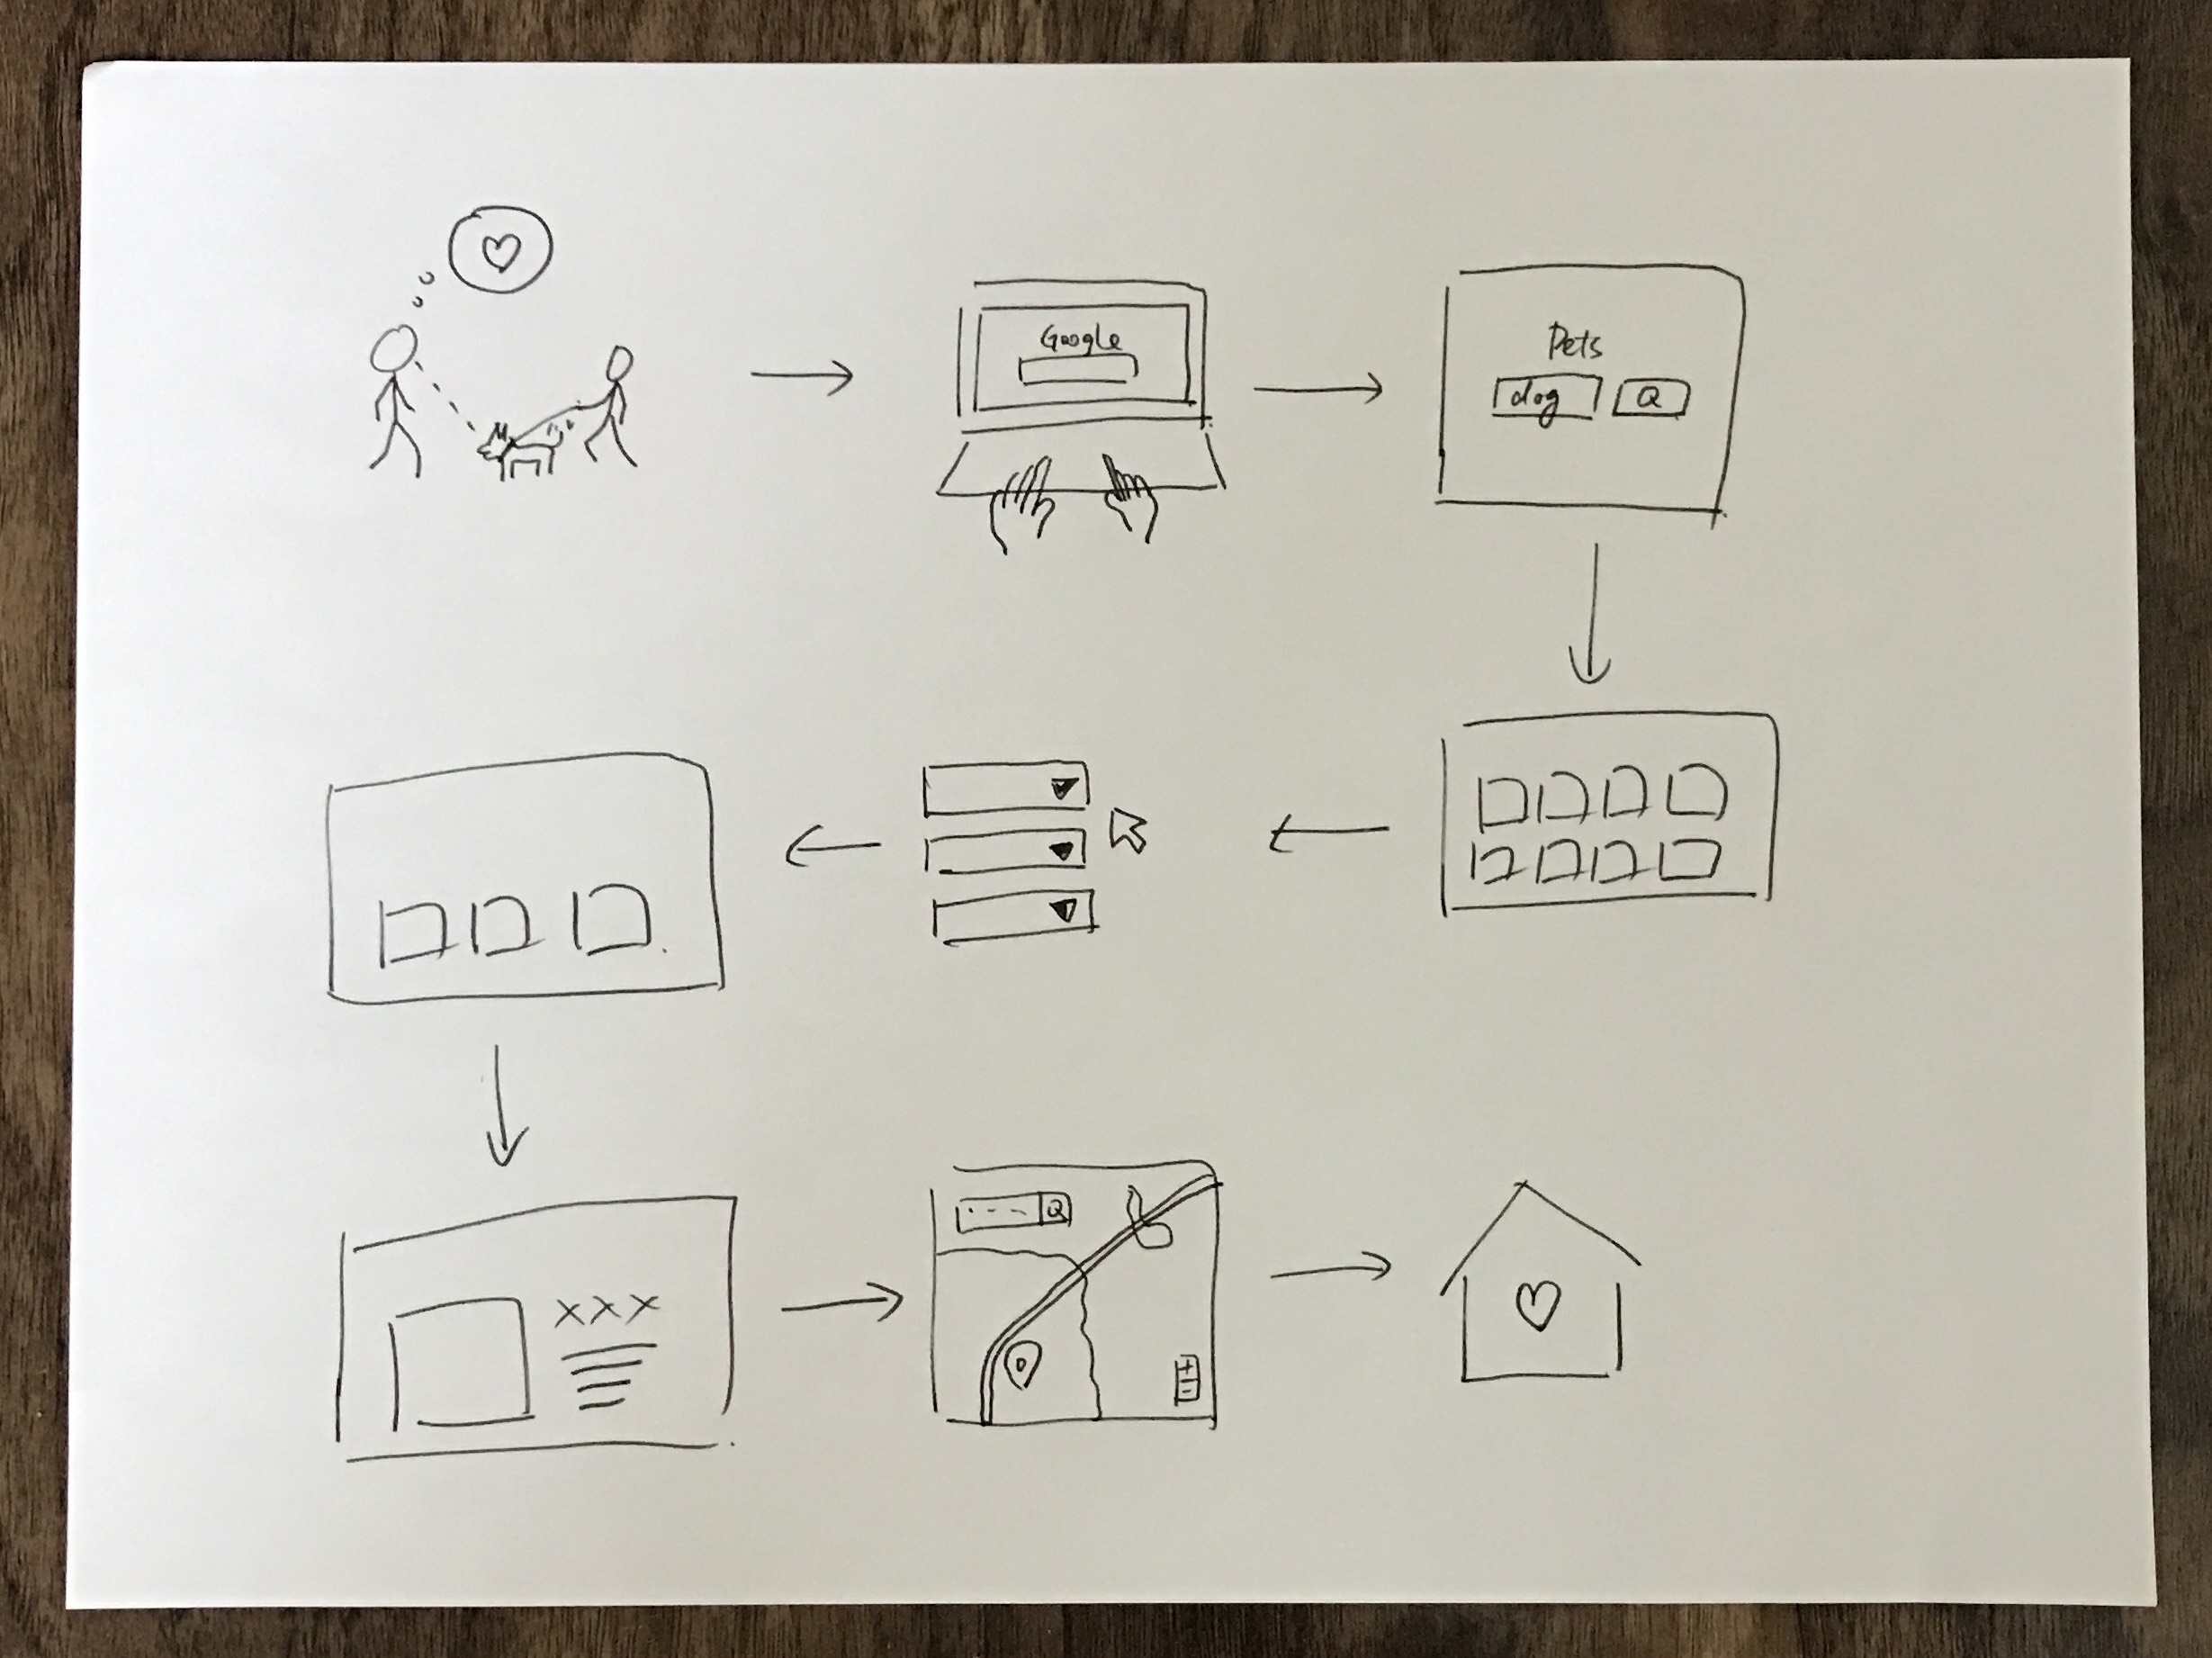 Google
Pets
dog
XXX